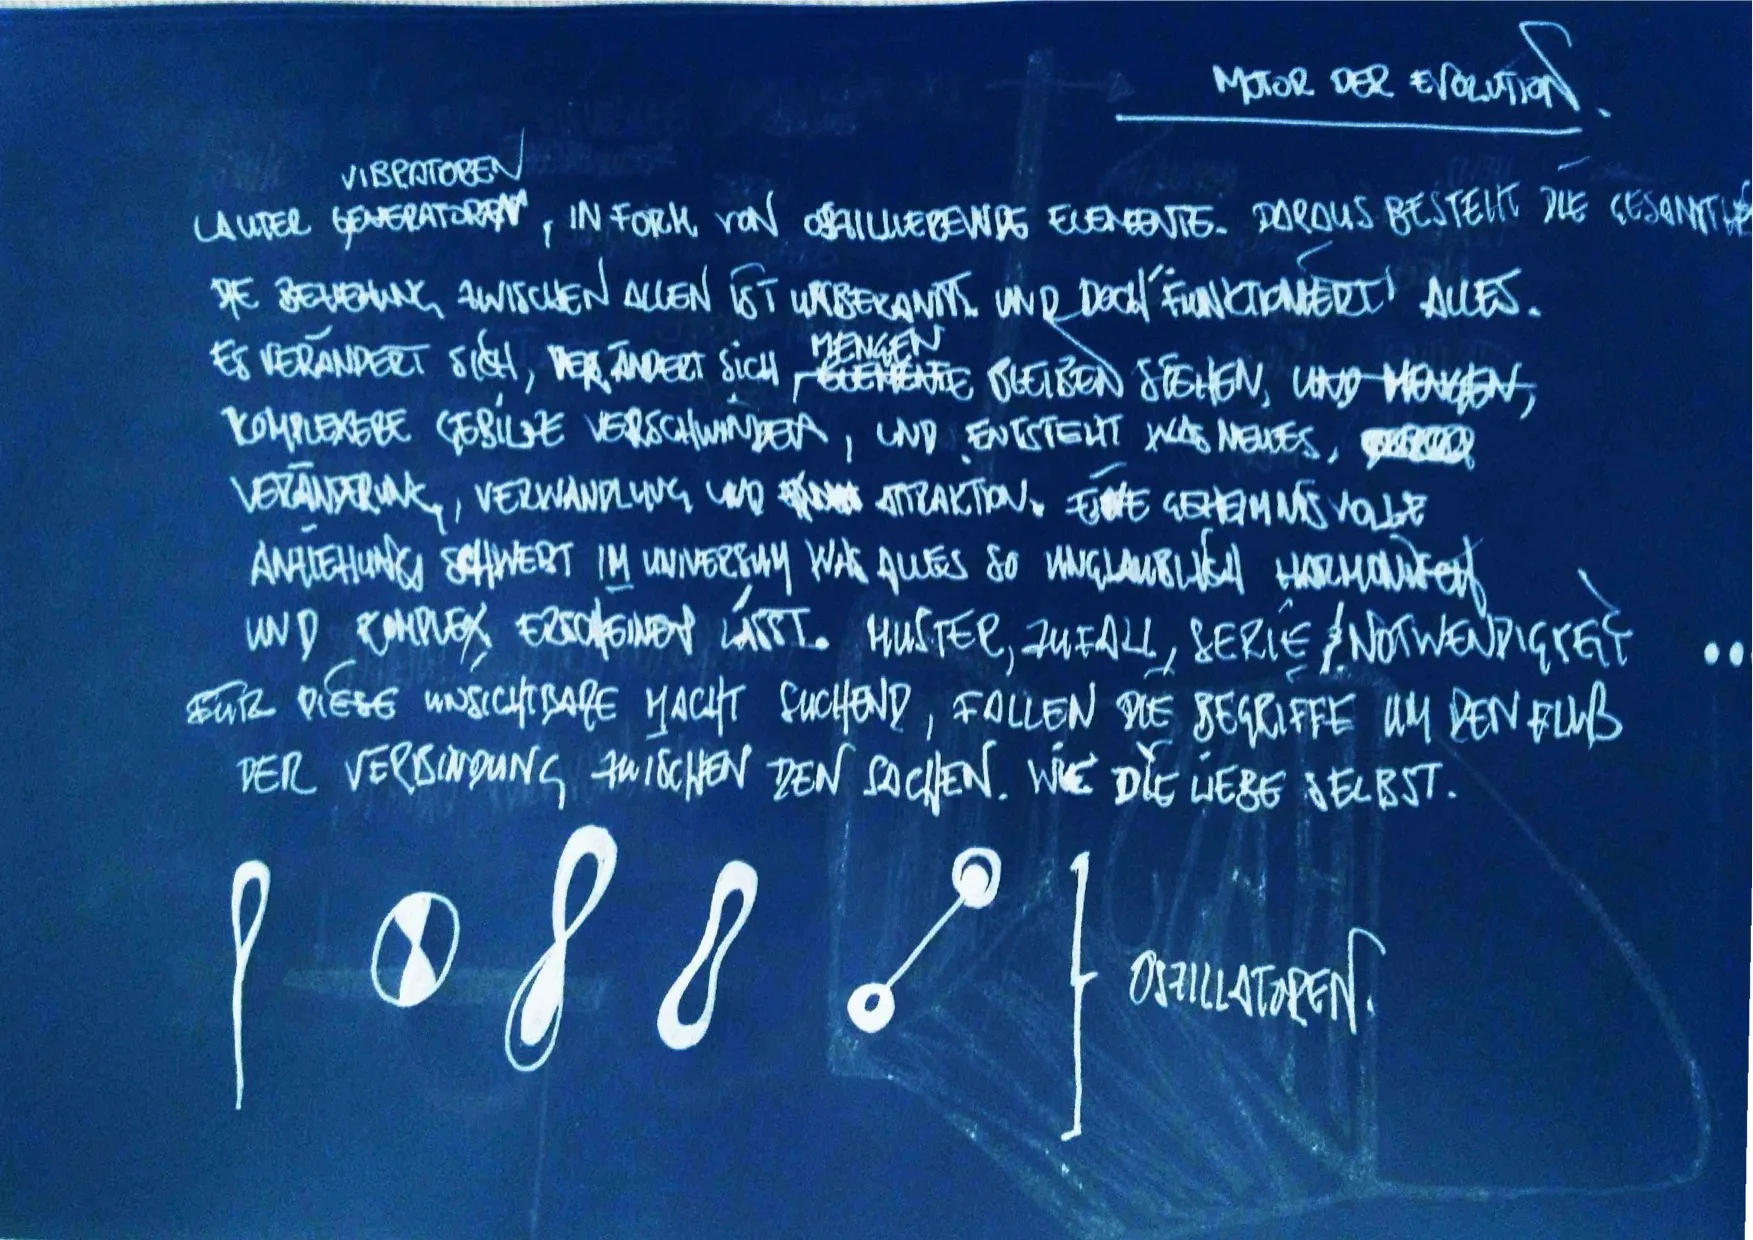 MOTOR DER EVOLUTION.
VIBRATOREN
LAUTER GENERATOREN, IN FORM VON OSZILLIERENDE ELEMENTE. DARAUS BESTEHT DIE
DIE BEZIEHUNG ZWISCHEN ALLEN IST UNBEKANNT. UND DOCH "FUNKTIONIERT" ALLES.
MENGEN
ES VERÄNDERT SICH, VERÄNDERT SICH, ELEMENTE BLEIBEN STEHEN, UND MENGEN,
KOMPLEXERE GEBILDE VERSCHWINDEN, UND ENTSTEHT WAS NEUES,
VERÄNDERUNG, VERWANDLUNG UND ATTRAKTION. EINE GEHEIMNISVOLLE
ANZIEHUNG SCHWEBT IM UNIVERSUM WAS ALLES SO UNGLAUBLICH
UND KOMPLEX ERSCHEINEN LÄSST. MUSTER, ZUFALL, SERIE & NOTWENDIGKEIT ..
FÜR DIESE UNSICHTBARE MACHT SUCHEND, FALLEN DIE BEGRIFFE UM DEN FLUß
DER VERBINDUNG ZWISCHEN DEN SACHEN. WIE DIE LIEBE SELBST.
OSZILLATOREN.